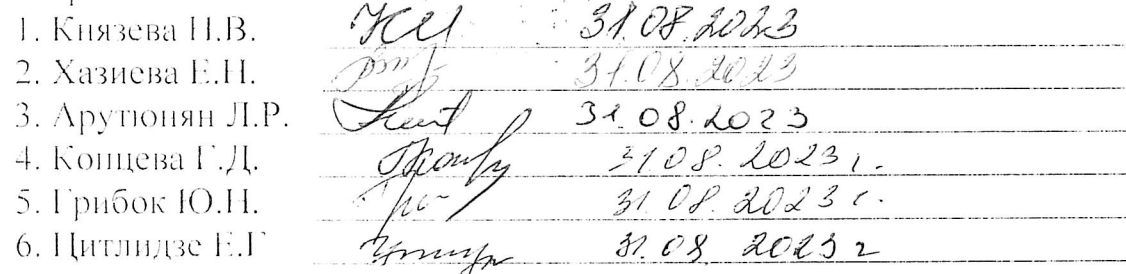 1. Князева Н.В. 31.08.2023
2. Хазиева Е.Н. 31.08.2023
3. Арутюнян Л.Р. 31.08.2023
4. Концева Г.Д. 31.08.2023 г.
5. Грибок Ю.Н. 31.08.2023 г.
6. Цитлидзе Е.Г 31.08 2023 г